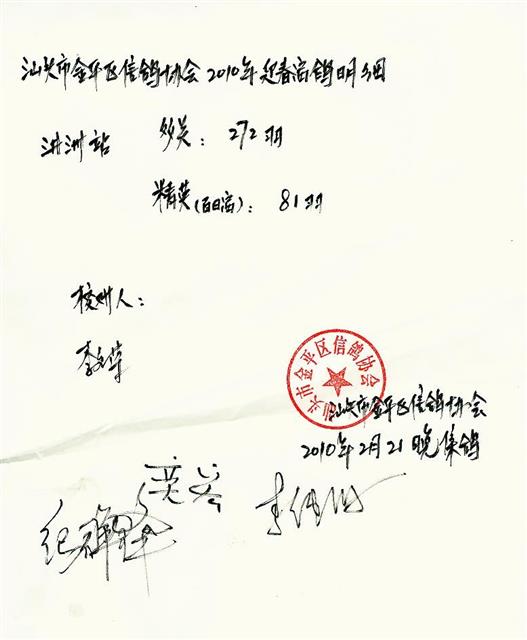 汕头市金平区信鸽协会2010年迎春富鸽明细
洪洲站 多关：272羽
精英(百日富)：81羽
核对人：
汕头市金平区信鸽协会
汕头市金平区信鸽协会
2010年2月21晚集鸽